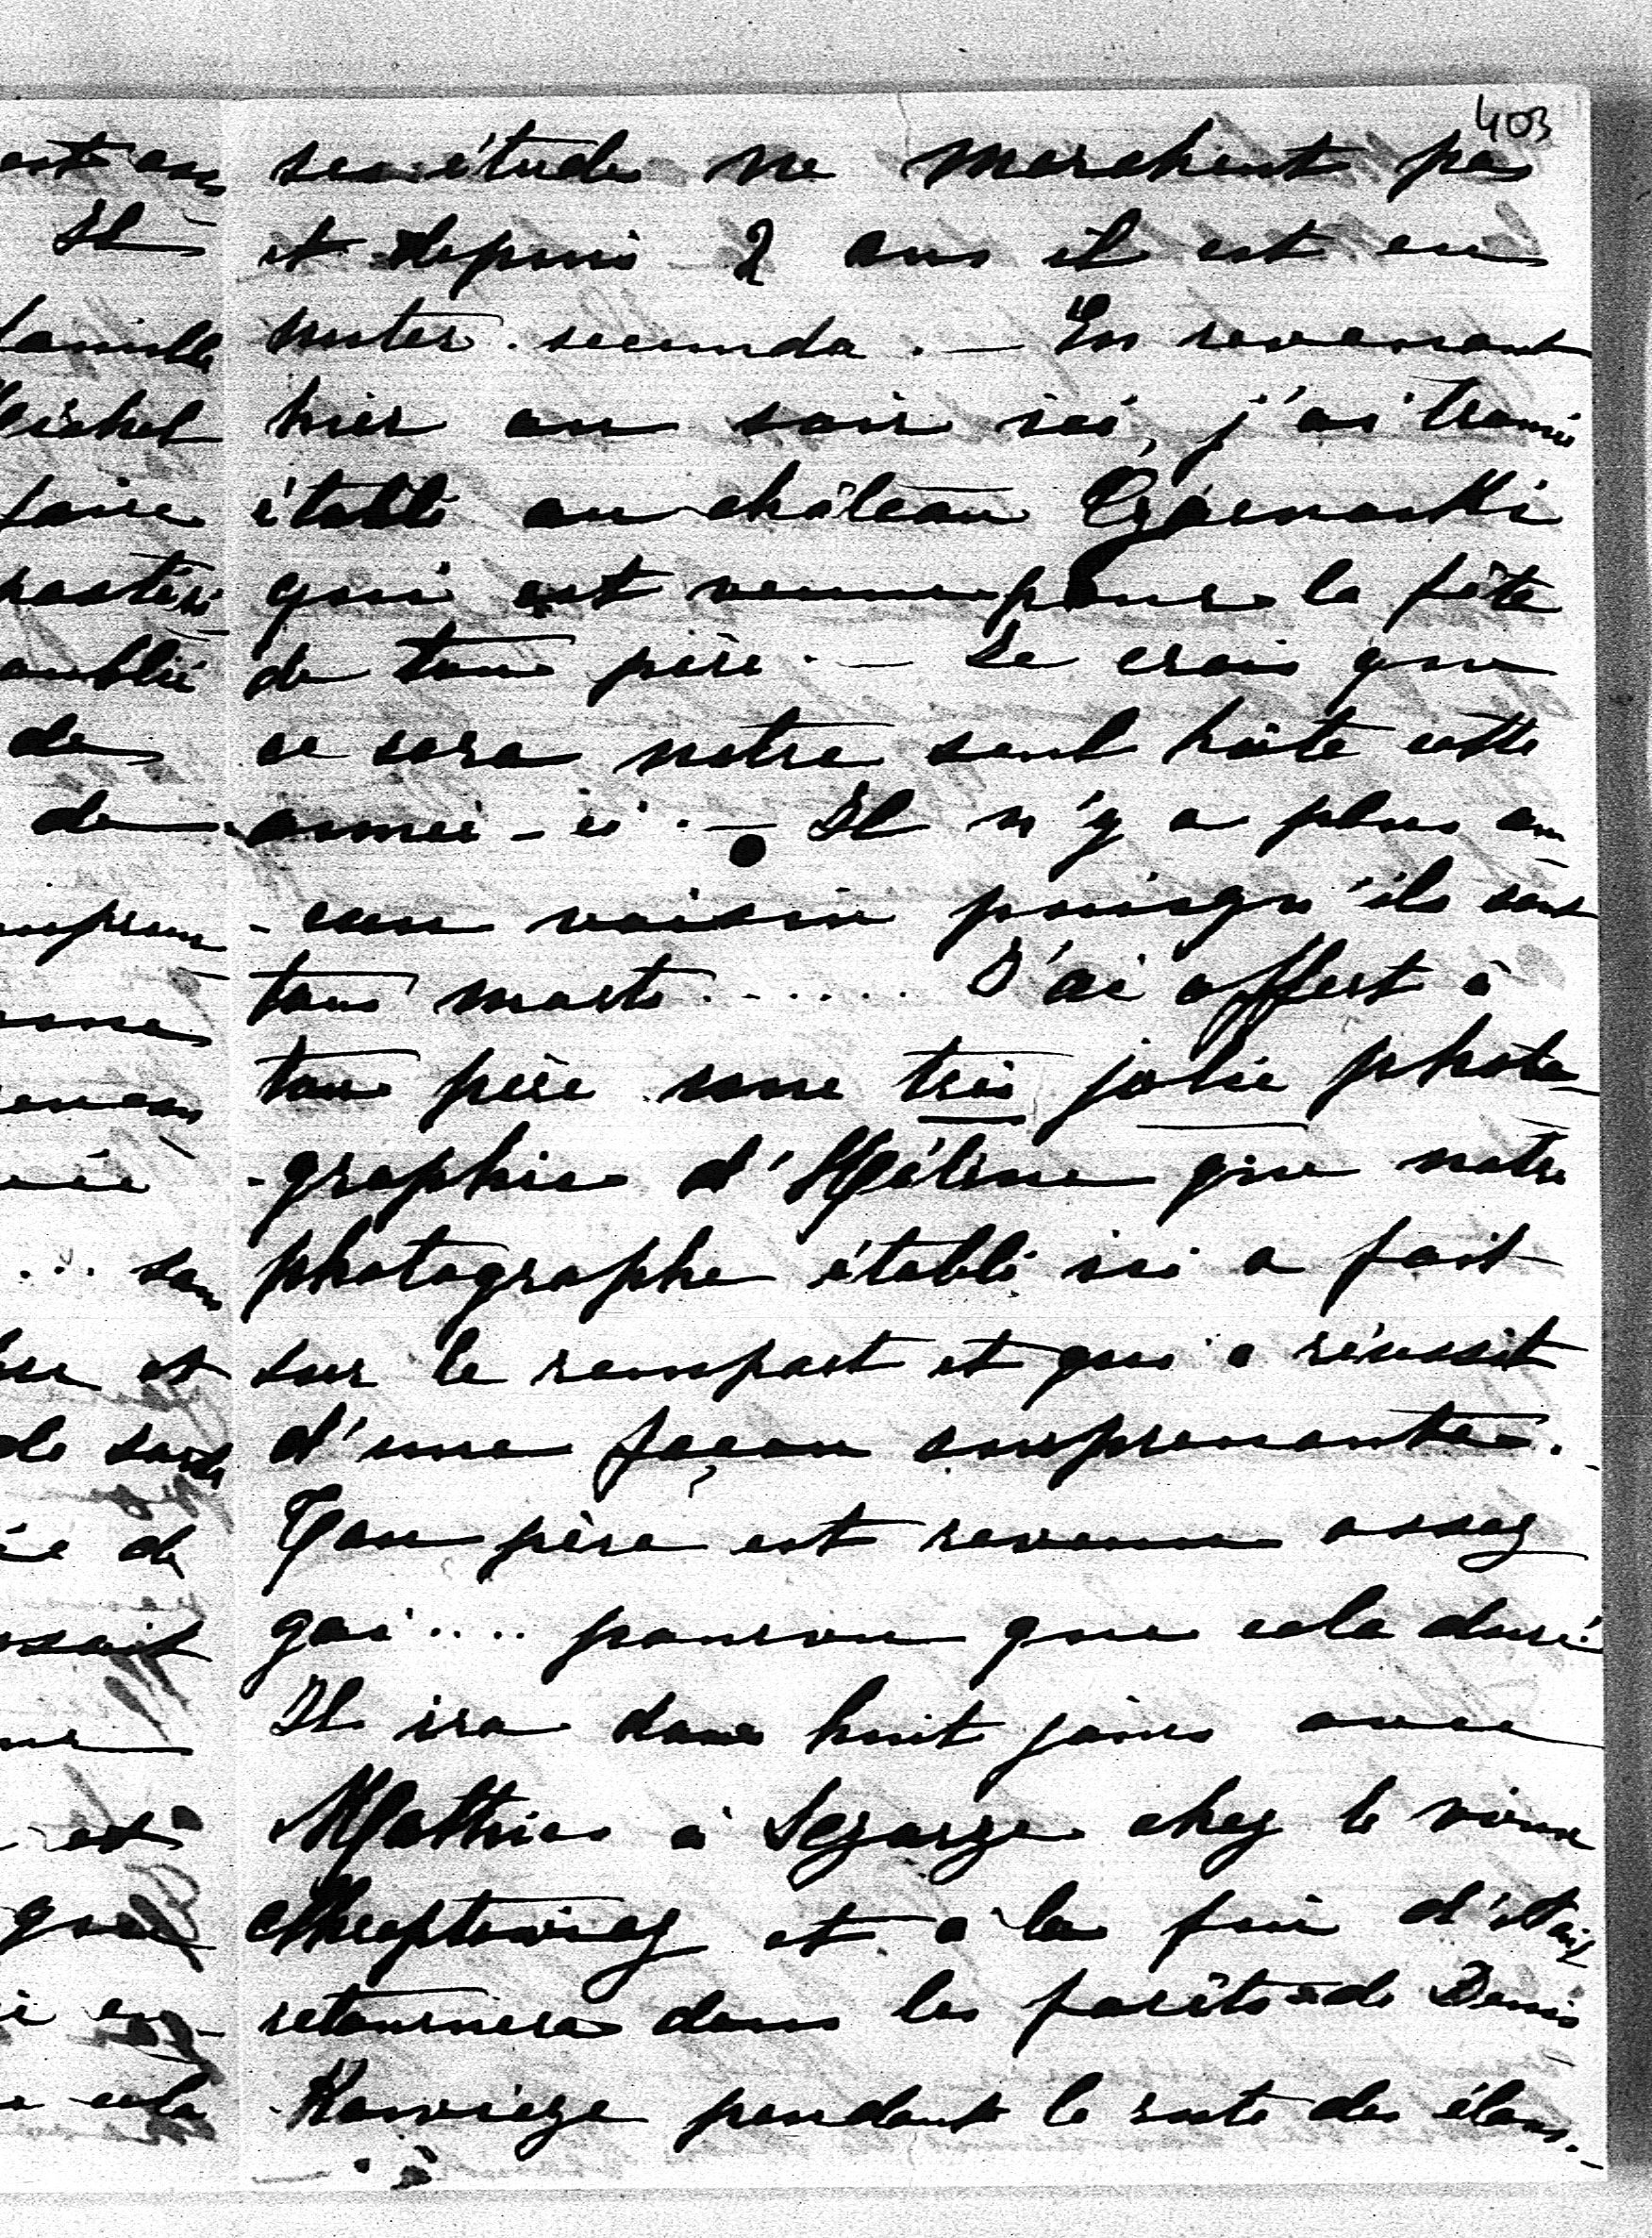 403
ses étude ne marchent pas
et depuis 2 ans il est en
unter secunda. — En revenant
hier au soir ici, j'ai trouvé
établi au château
qui est venu pour la fête
de ton père. — Je crois que
ce sera notre seul hôte cette
année-ci. — Il n'y a plus au-
-cun voisin puisqu'ils sont
tous morts....... J'ai offert à
ton père une très jolie photo-
-graphie d'Hélène que notre
photographe établi ici a fait
sur le rempart et qui a réussit
d'une façon surprenante.
Ton père est revenu assez
gai.... pourvu que cela dure.
Il ira dans huit jours avec
Mathias à chez le vieux
et à la fin d'août
retournera dans les forêts de Denis-
pendant le rute des élans.-
est
Il
famille
Michel
faire
oublié
de
de
et
de
et
que
cela